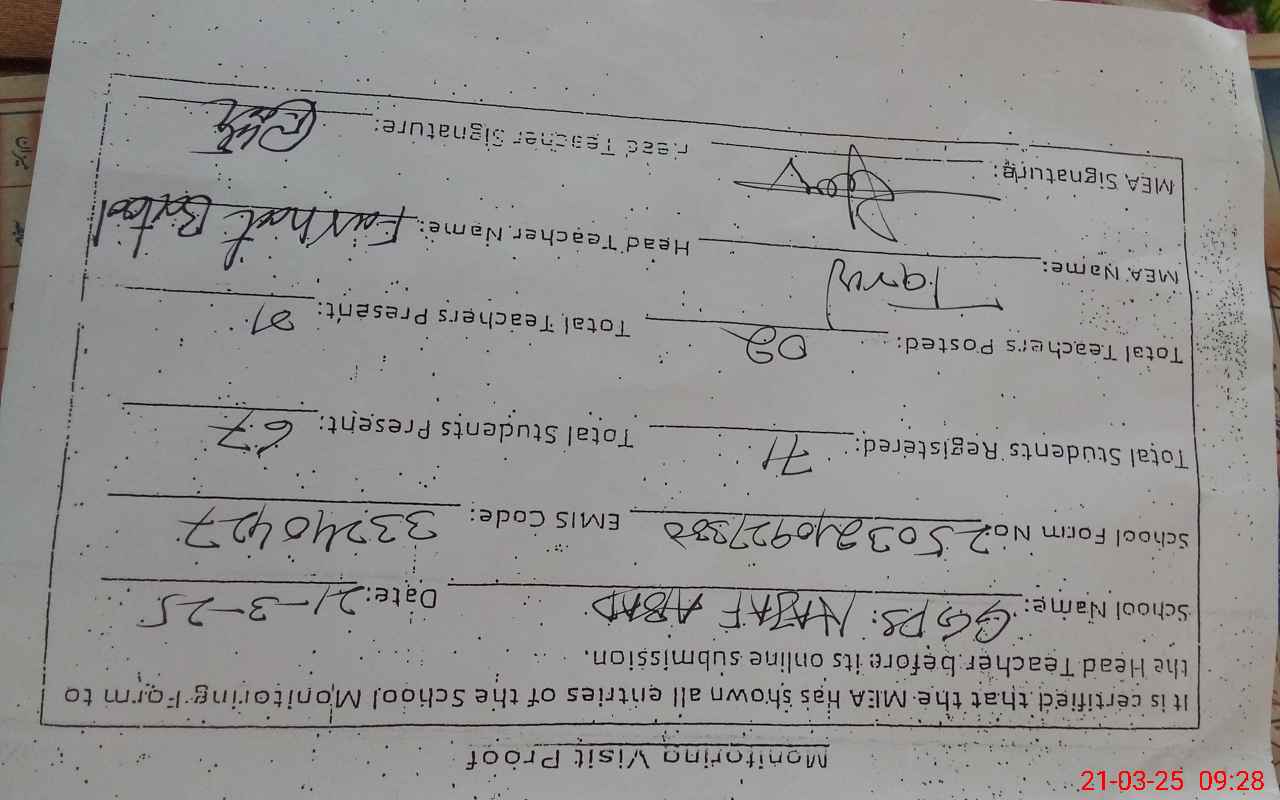 Monitoring Visit Proof
It is certified that the MEA has shown all entries of the School Monitoring Form to
the Head Teacher before its online submission.
School Name: GGPS: NAJAF ABAD Date: 21-3-25
School Form No: EMIS Code: 33240427
Total Students Registered: 71 Total Students Present: 67
Total Teachers Posted: 02 Total Teachers Present: 01
MEA Name: Head Teacher Name: Farhat Batool
MEA Signature: Head Teacher Signature:
21-03-25 09:28